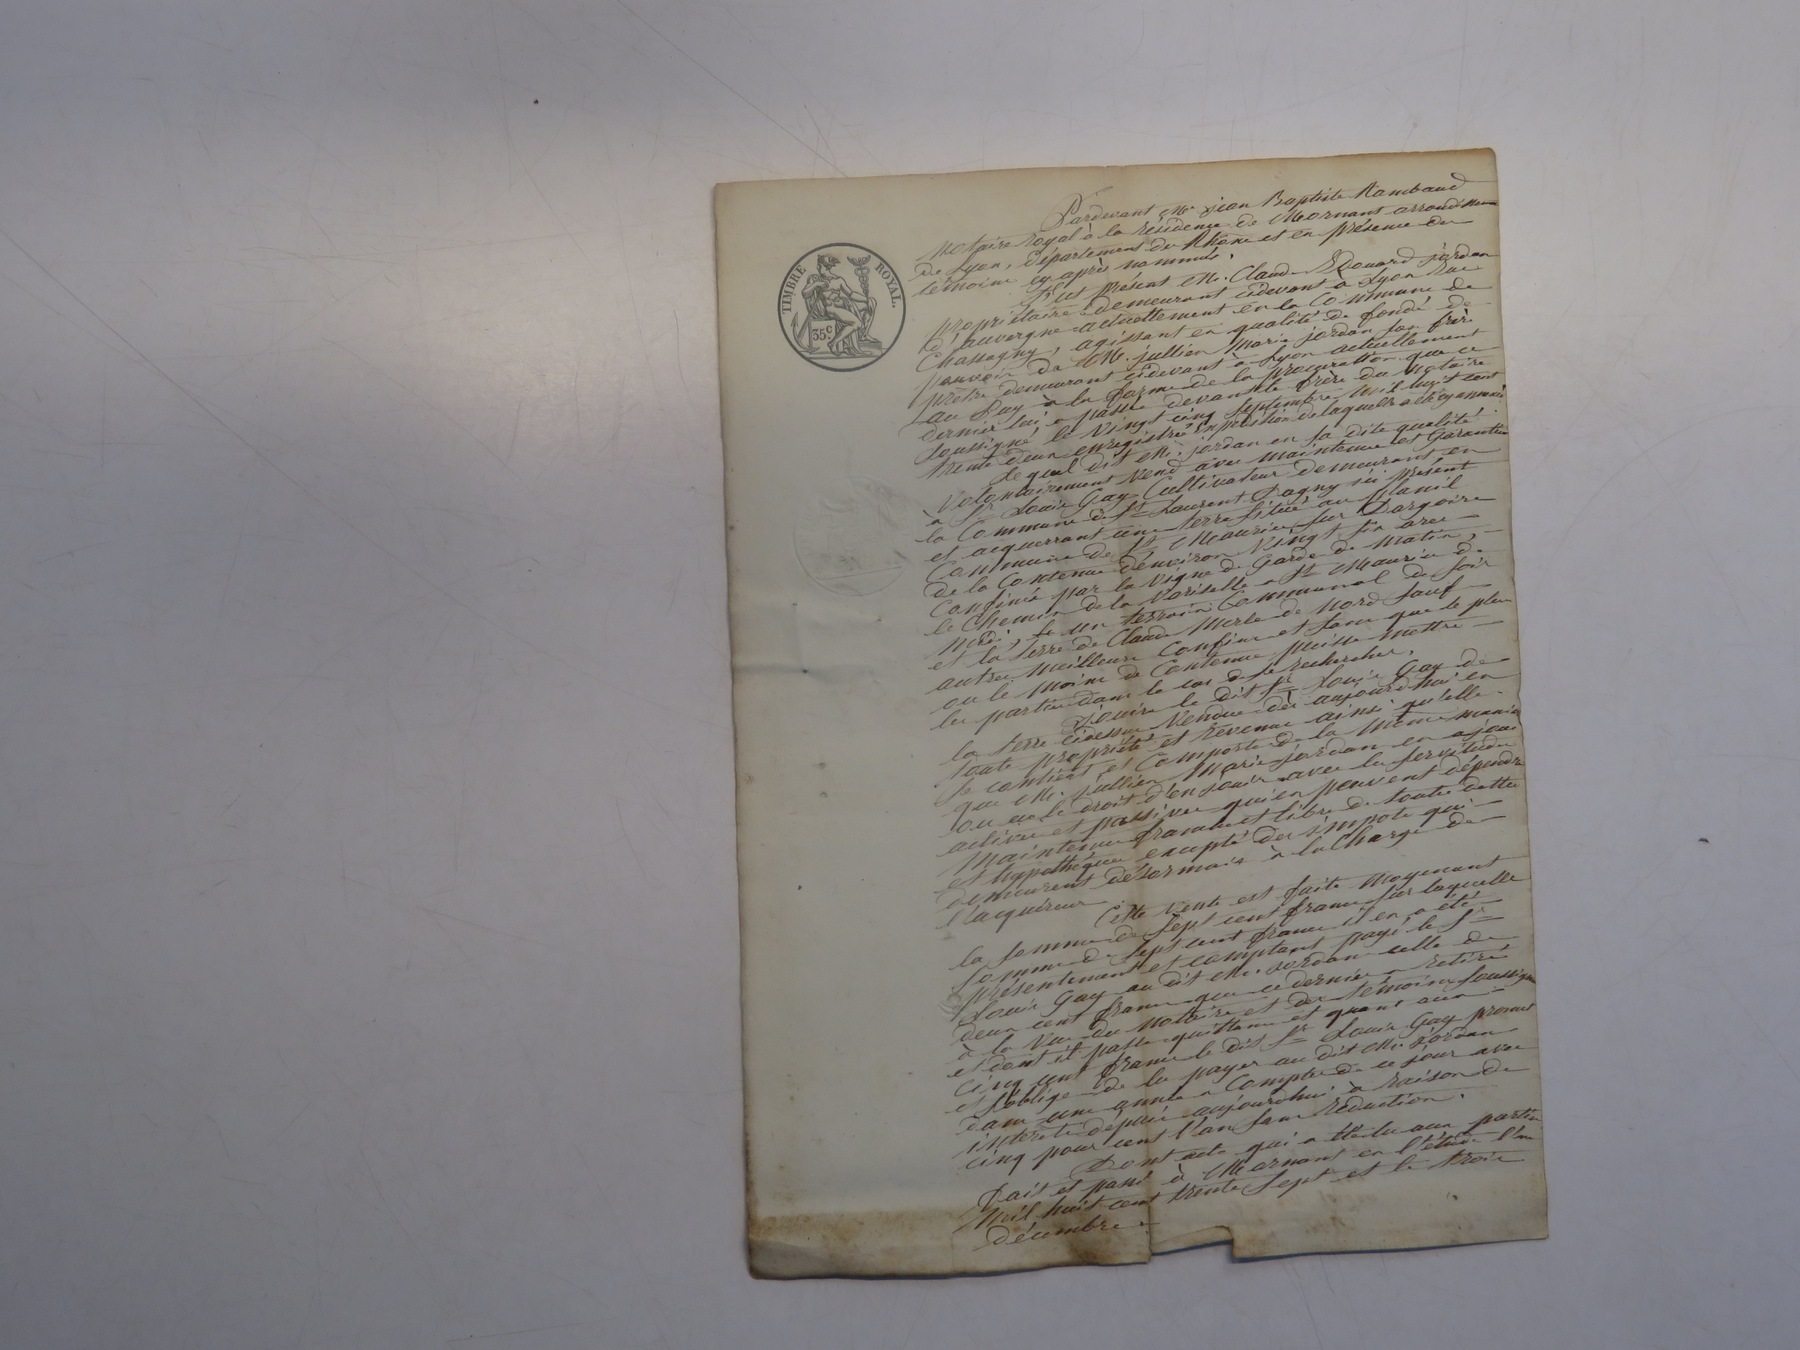 TIMBRE ROYAL.
35 c
Pardevant Me jean Baptiste Rambaud
Notaire royal à la résidence de Mornant arrondisseme
de Lyon, département du Rhône et en présence des
témoins cy après nommés,
fut présent M. Claude Edouard jordan
propriétaire demeurant cidevant à Lyon Rue
d'auvergne actuellement en la Commune de
Chassagny, agissant en qualité de fondé de
pouvoir de M. jullien Marie jordan son frère
prêtre demeurant cidevant à Lyon actuellement
au Puy à la forme de la procuration que ce
dernier lui a passé devant le frère du Notaire
soussigné, le vingt cinq septembre mil huit cent
trente deux enregistré
Lequel dit M. jordan en sa dite qualité
Volontairement vend avec maintenue et Garantie
à Sr Louis Gay Cultivateur demeurant en
la Commune de St Laurent Dagny ici présent
et acquerrant une terre située au Planil
Commune de St Maurice sur Dargoire
de la Contenue d'environ Vingt six ares
Confinée par la vigne de Garde de Matin,
le Chemin de la Noriselle a St Maurice de
Midi, le un terrein Communal de soir
et la terre de Claude Merle de Nord sauf
autres meilleurs Confins et sans que le plus
ou le moins de Contenue puisse mettre
les parties dans le cas de se rechercher,
Jouira le dit Sr Louis Gay de
la terre cidessus Vendue dès aujourd'hui en
toute propriété et Revenus ainsi qu'elle
se contient et Comporte de la même manière
que M. jullien Marie jordan en a joui
ou eu le droit d'en jouir avec les servitudes
actives et passives qui en peuvent dépendre
Maintenue franche et libre de toutes dettes
et hypothèques excepté des impots qui
demeurent désormais à la Charge de
l'acquéreur
Cette vente est faite Moyenant
la somme de sept cent francs sur laquelle
somme de sept cent francs il en a été
présentement et comptant payé le Sr
Louis Gay au dit M. Jordan celle de
deux cent francs que ce dernier a retiré
à la Vue du Notaire et des témoins soussignés
et dont il passe quittance et quant aux
cinq cent francs le dit Sr Louis Gay promet
et s'oblige de les payer au dit M. jordan
dans une année a Compter de ce jour avec
intérêts depuis aujourd'hui à raison de
cinq pour cent l'an sans réduction.
Dont acte qui a été lu aux parties
Fait et passé à Mornant en l'étude l'an
Mil huit cent trente sept et le trois
décembre